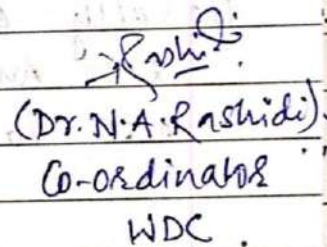 Rashidi
(Dr. N. A. Rashidi)
Co-ordinator
WDC.